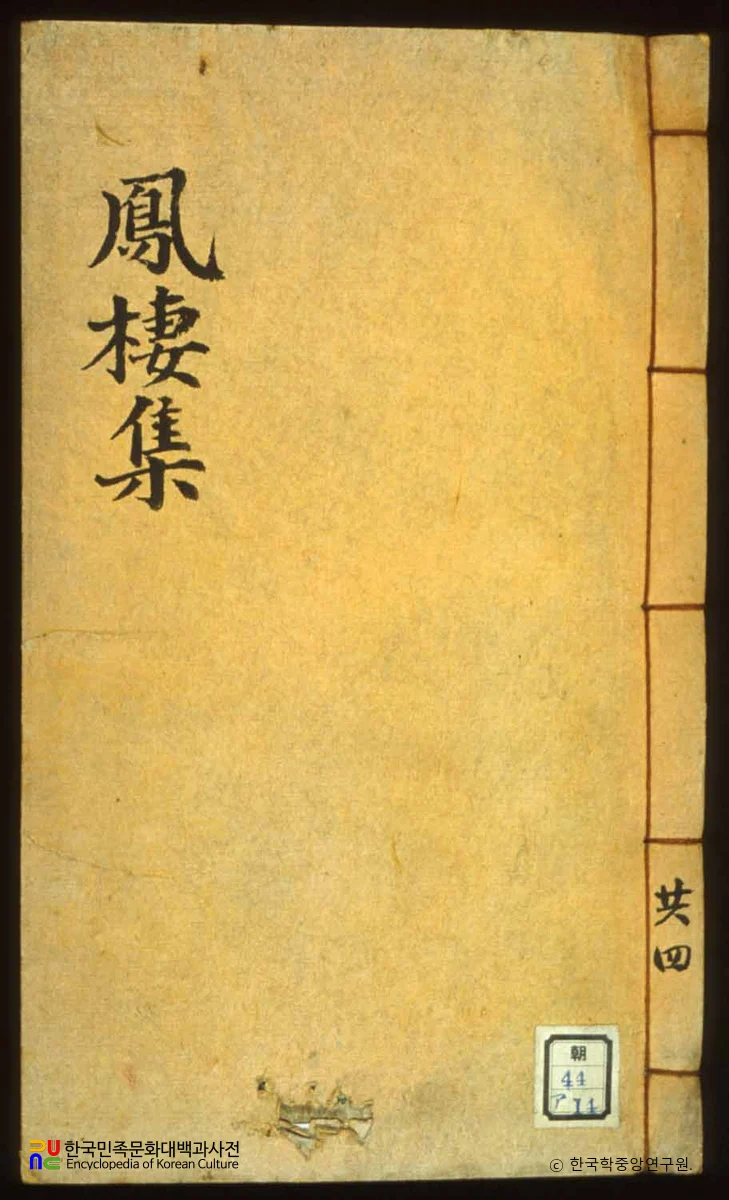 鳳棲集
共四
朝
44
ア 14
한국민족문화대백과사전
Encyclopedia of Korean Culture
ⓒ 한국학중앙연구원.